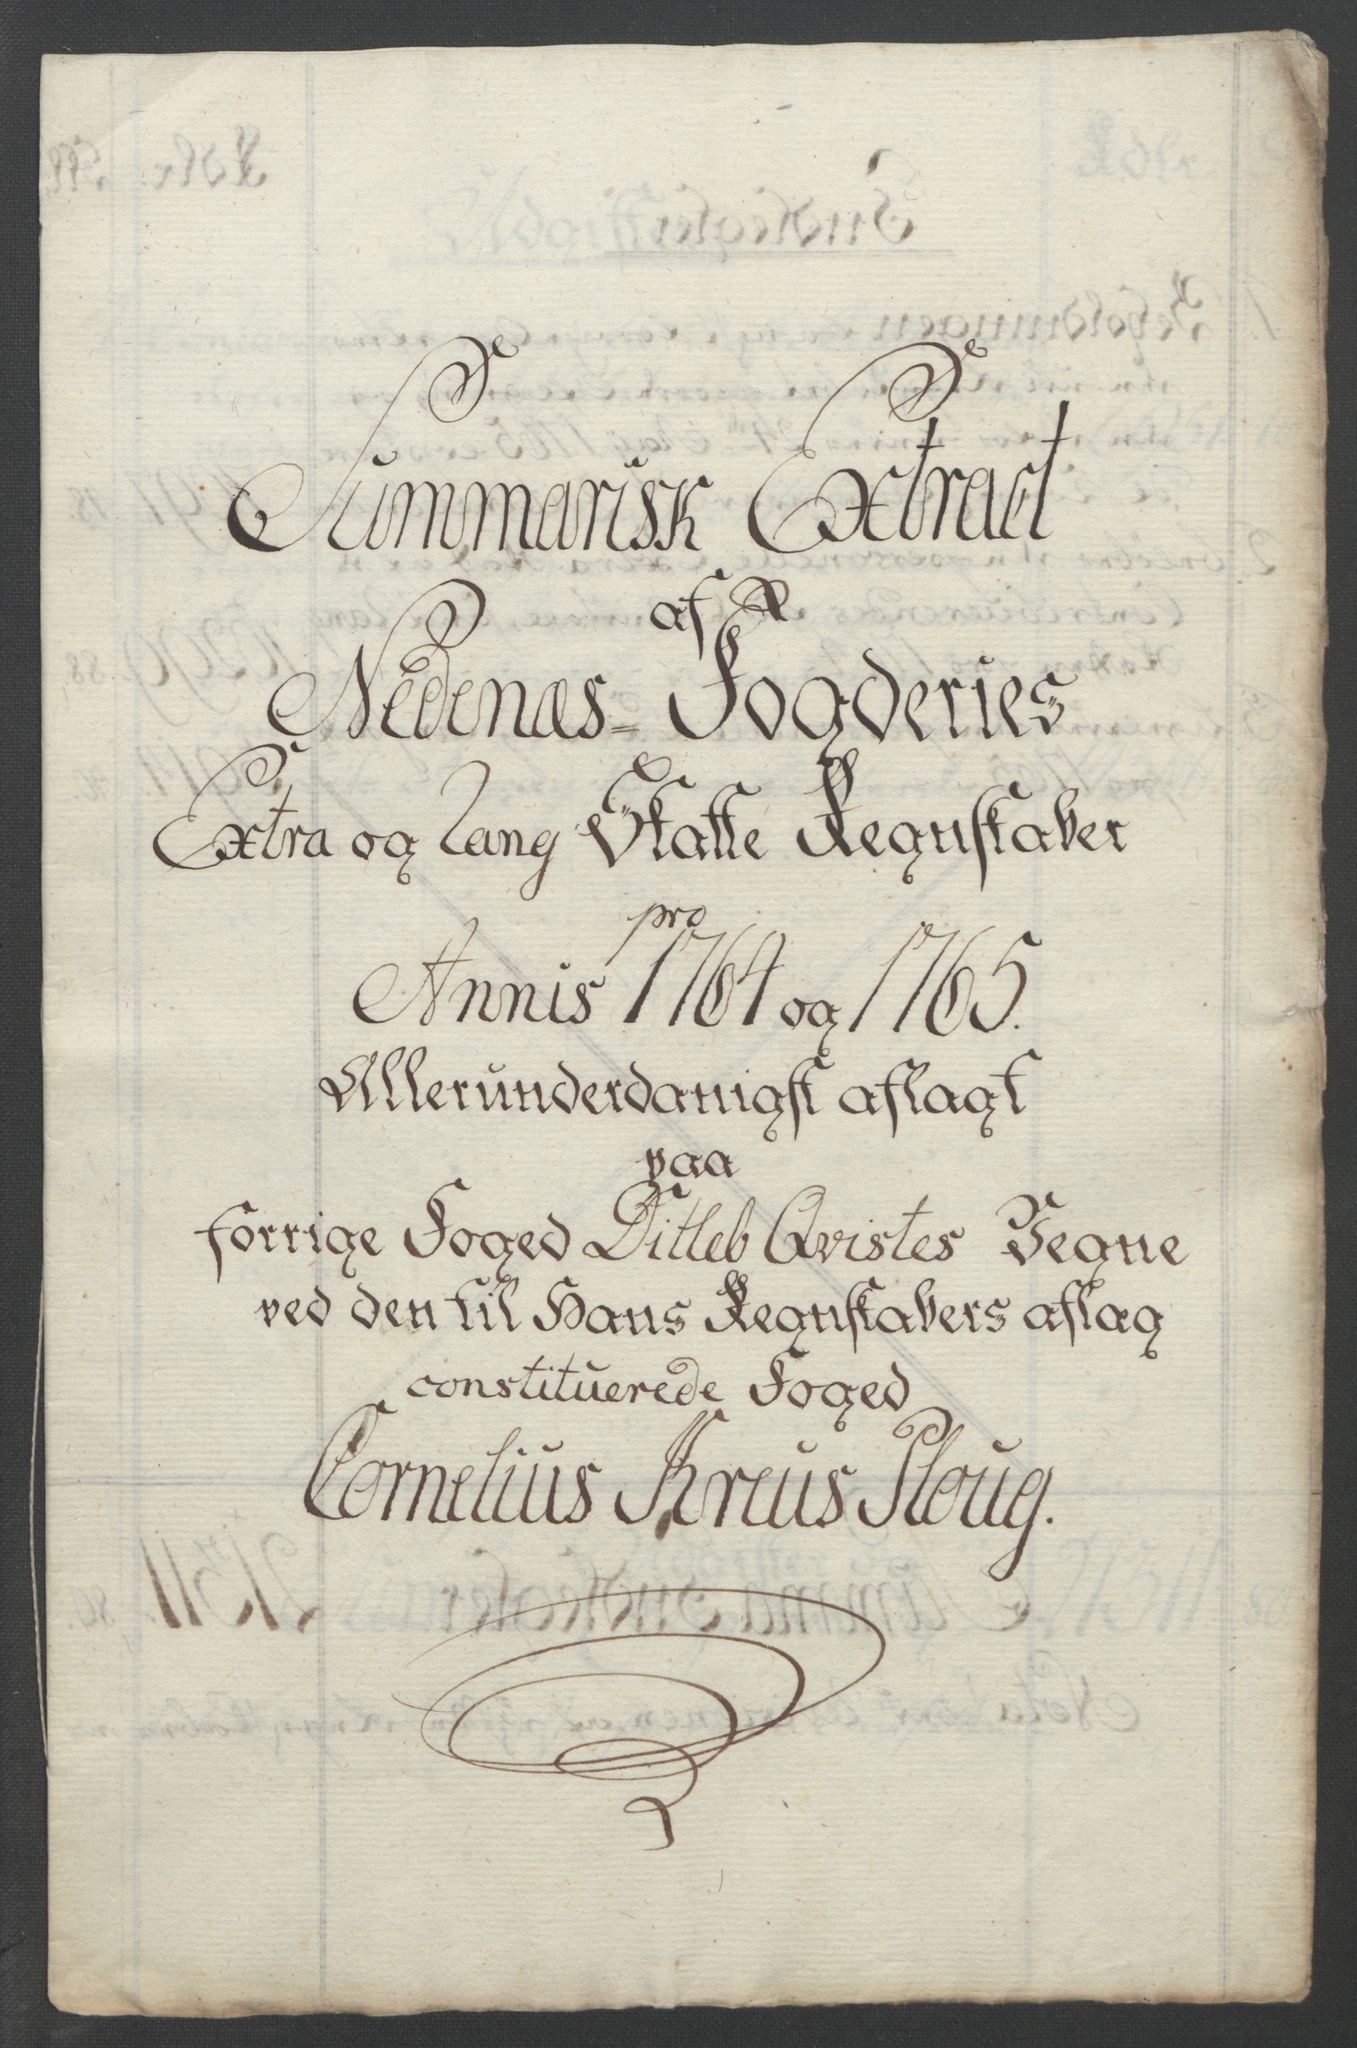 Summarisk Extract
af
Nedenæs- Fogderies
Extra og Lang Skatte Regnskaber
pro
Annis 1764 og 1765.
Allerunderdanigst aflagt
paa
forrige Foged Ditleb Qvistes Vegne
ved den til Hans Regnskabers aflæg
constituerede Foged
Cornelius Kreus Ploug.